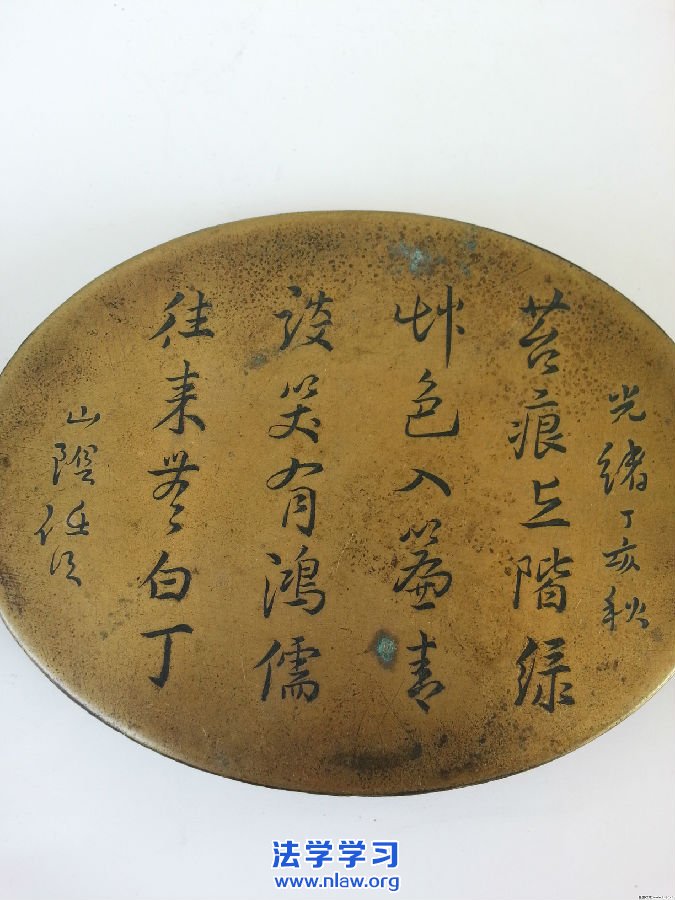 光绪丁亥秋
苔痕上階緑
艸色入簾青
談笑有鴻儒
往来无白丁
山陰任頤
法学学习
www.nlaw.org